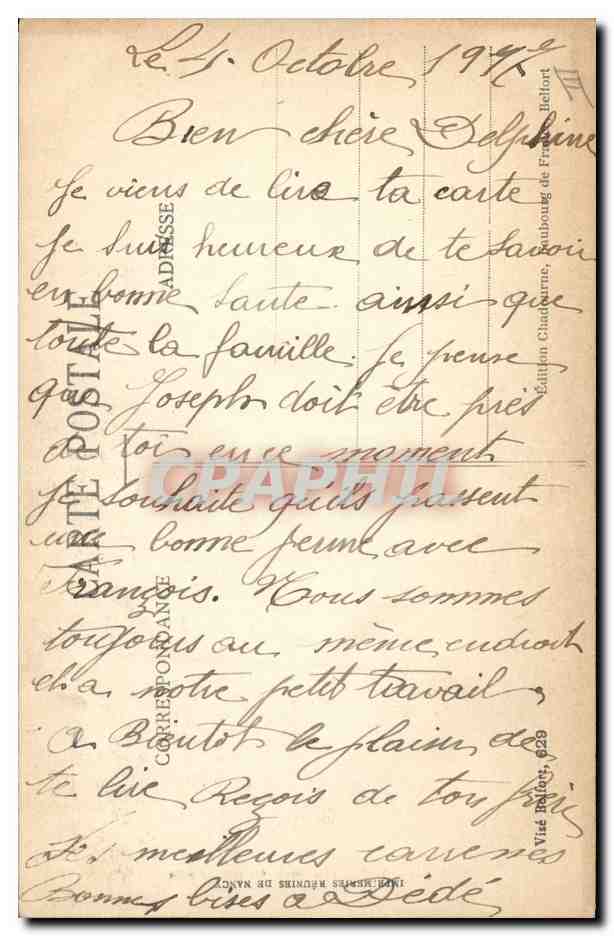 Le 4. Octobre 191
Bien chère Delphine
Je viens de lire ta carte
Je suis heureux de te savoir
en bonne sante ainsi que
toute la famille. Je pense
que Joseph doit être près
de toi en ce moment
Je souhaite qu'ils passent
une bonne perme avec
François. Nous sommes
toujours au même endroit
et a notre petit travail.
A Bientot le plaisir de
te lire Reçois de ton frère
Les meilleures carresses
Bonnes bises a Dédé
CARTE POSTALE
ADRESSE
CORRESPONDANCE
Édition Chadourne, Faubourg de France, Belfort
Visé Belfort, 629
IMPRIMERIES RÉUNIES DE NANCY
III
3
CPAPHIL